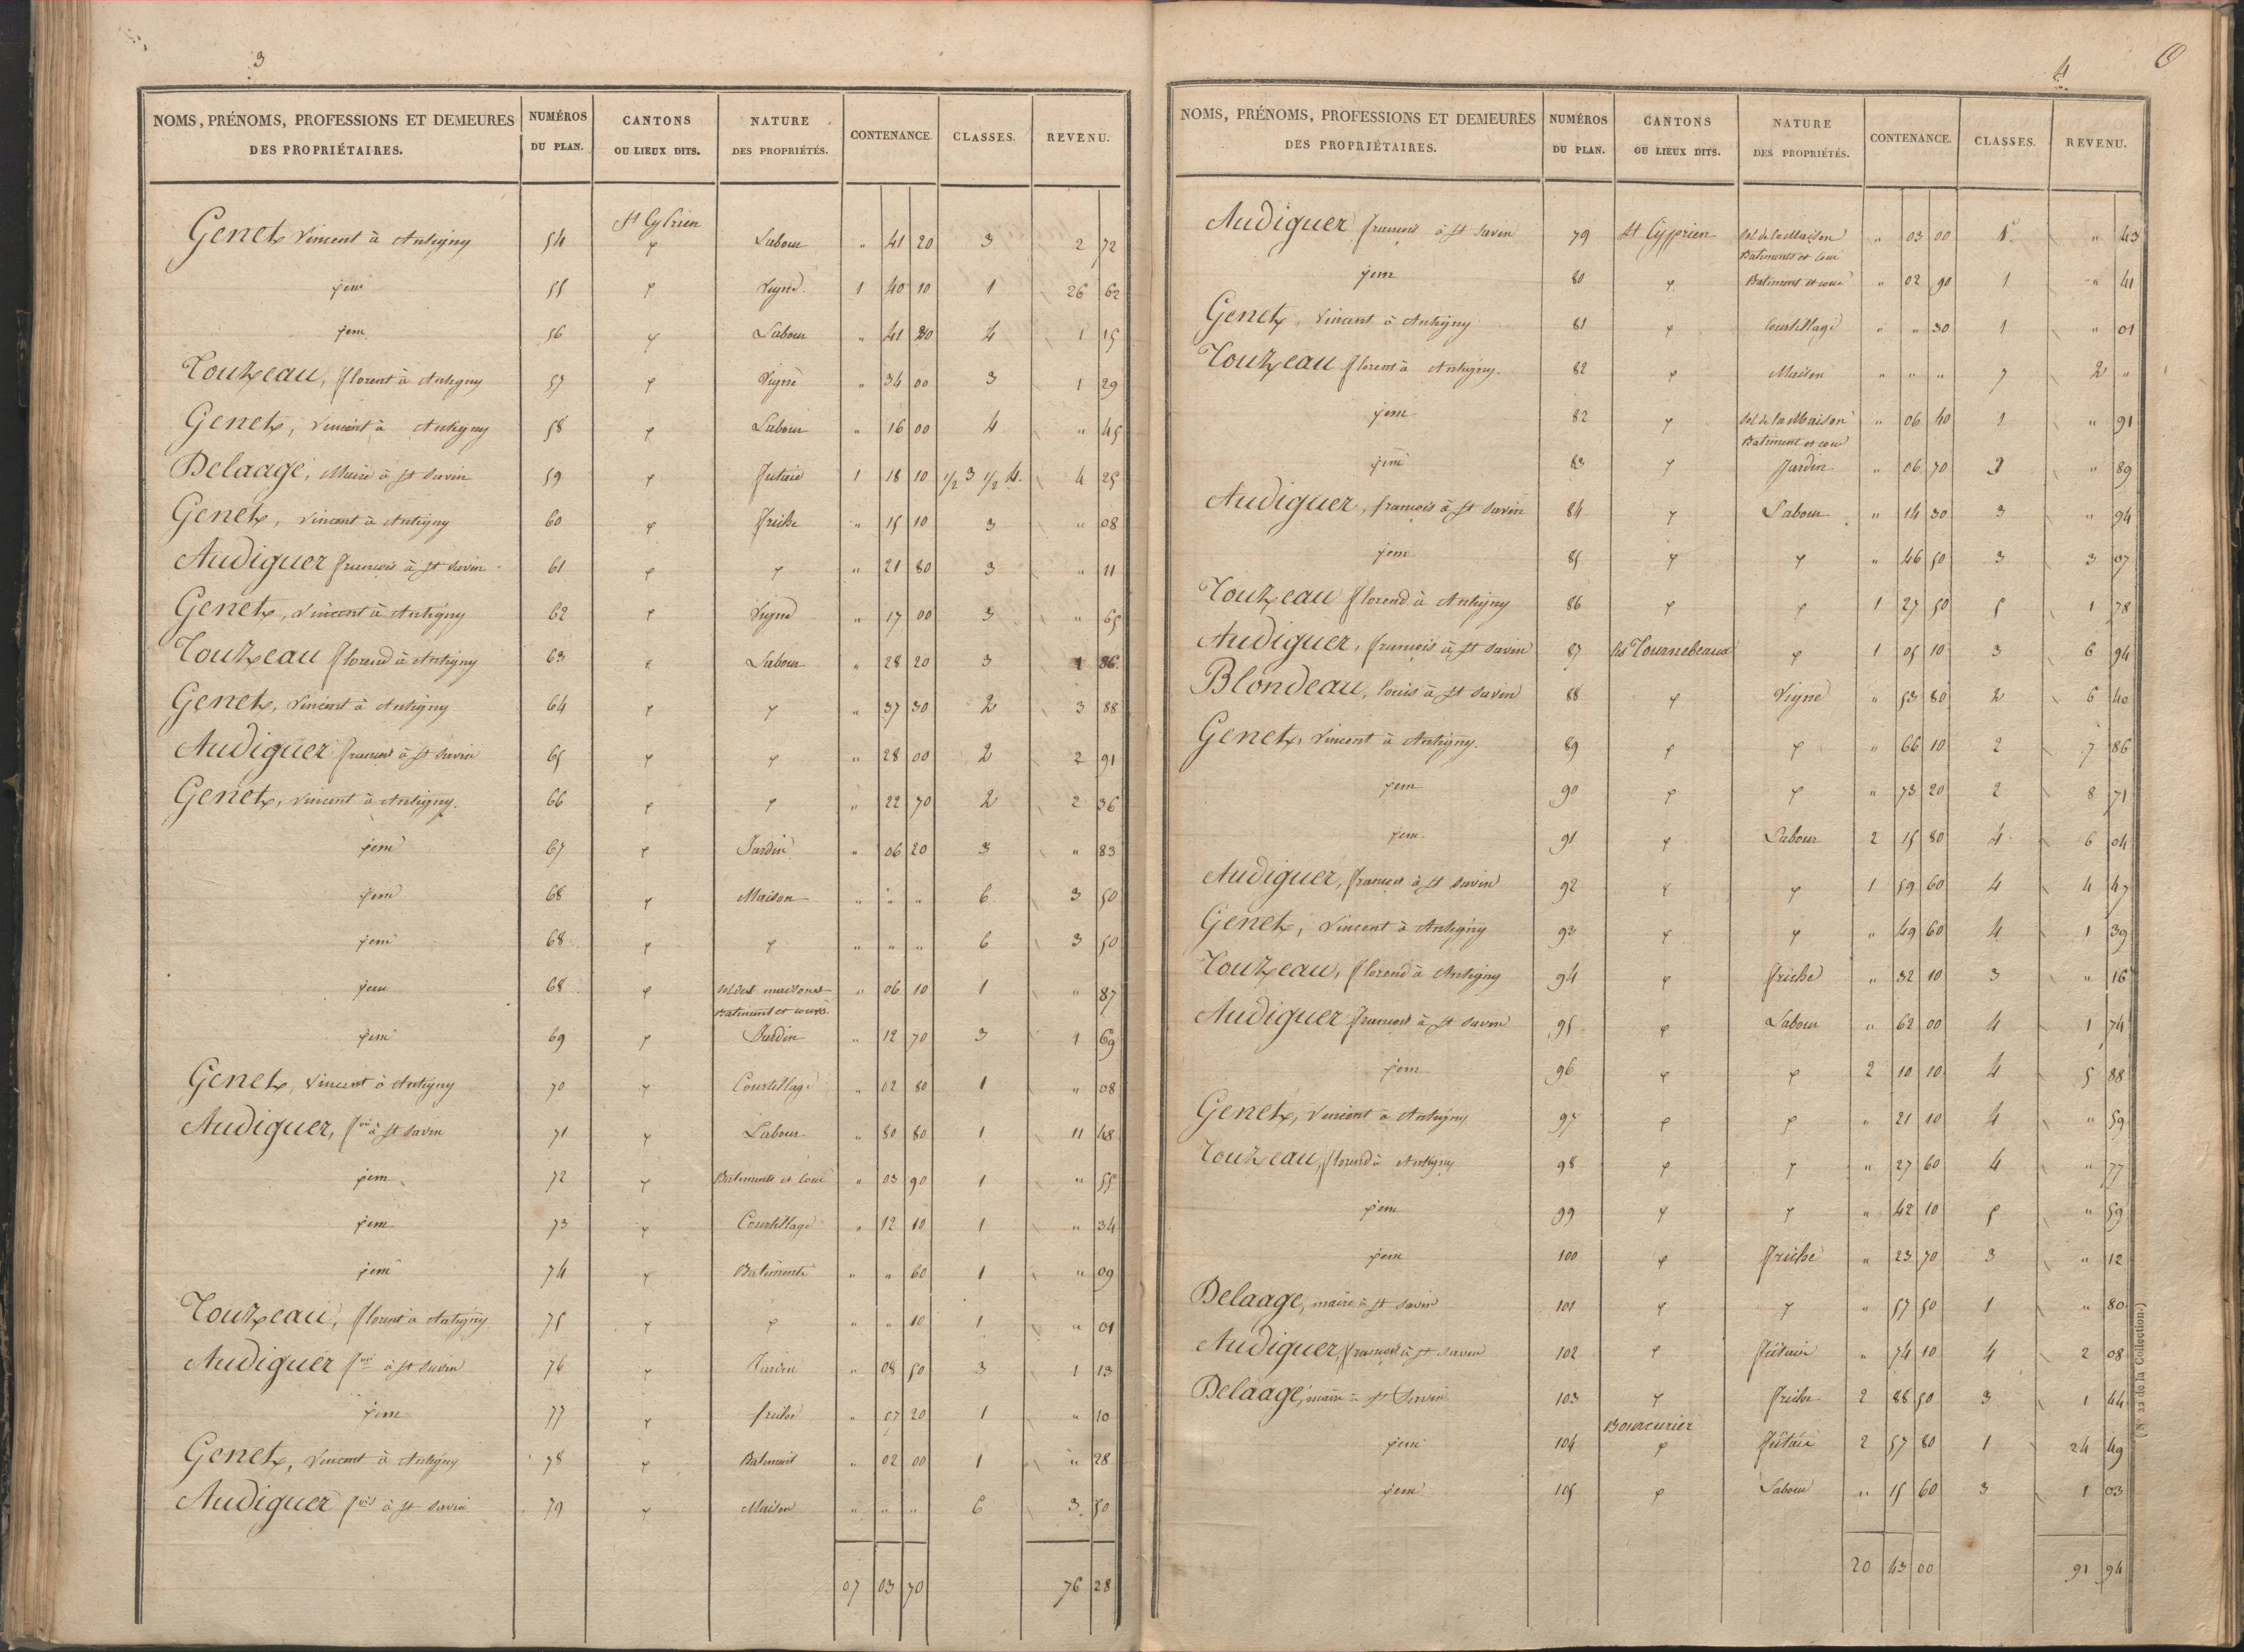 3
NOMS, PRÉNOMS, PROFESSIONS ET DEMEURES DES PROPRIÉTAIRES. NUMÉROS DU PLAN. CANTONS OU LIEUX DITS. NATURE DES PROPRIÉTÉS. CONTENANCE. CLASSES. REVENU.
St Cyprien
Genet, Vincent à Antigny 54 φ Labour " 41 20 3 2 72
φem 55 φ Vigne 1 40 10 1 26 62
φem 56 φ Labour " 41 20 4 1 15
Touzeau, florent à Antigny 57 φ Vigne " 34 00 3 1 29
Genet, Vincent à Antigny 58 φ Labour " 16 00 4 " 45
Delaage, Maire à St Savin 59 φ futaie 1 18 10 1/2 3 1/2 4. 4 25
Genet, Vincent à Antigny 60 φ friche " 15 10 3 " 08
Audiguer françois à St Savin 61 φ φ " 21 80 3 " 11
Genet, Vincent à Antigny 62 φ Vigne " 17 00 3 " 65
Touzeau florend à Antigny 63 φ Labour " 28 20 3 1 86
Genet, Vincent à Antigny 64 φ φ " 37 30 2 3 88
Audiguer françois à St Savin 65 φ φ " 28 00 2 2 91
Genet, Vincent à Antigny. 66 φ φ " 22 70 2 2 36
φem 67 φ Jardin " 06 20 3 " 83
φem 68 φ Maison " " " 6 3 50
φem 68 φ φ " " " 6 3 50
φem 68 φ sol des maisons " 06 10 1 " 87
Batiment et cours.
φem 69 φ Jardin " 12 70 3 1 69
Genet, Vincent à Antigny 70 φ Courtillage " 02 80 1 " 08
Audiguer, fois à St Savin 71 φ Labour " 80 80 1 11 48
φem 72 φ Batiments et Cour " 03 90 1 " 55
φem 73 φ Courtillage " 12 10 1 " 34
φem 74 φ Batiments " " 60 1 " 09
Touzeau, florent à Antigny 75 φ φ " " 10 1 " 01
Audiguer fois à St Savin 76 φ Jardin " 08 50 3 1 13
φem 77 φ friche " 07 20 1 " 10
Genet, Vincent à Antigny 78 φ Batiment " 02 00 1 " 28
Audiguer fois à St Savin 79 φ Maison " " " 6 3 50
07 03 70 76 28
4
NOMS, PRÉNOMS, PROFESSIONS ET DEMEURES DES PROPRIÉTAIRES. NUMÉROS DU PLAN. CANTONS OU LIEUX DITS. NATURE DES PROPRIÉTÉS. CONTENANCE. CLASSES. REVENU.
Audiguer françois à St Savin 79 St Cyprien Sol de la Maison " 03 00 1. " 43
Batiments et Cour
φem 80 φ Batiment et cour " 02 90 1 " 41
Genet, Vincent à Antigny 81 φ Courtillage " " 30 1 " 01
Touzeau florent à Antigny. 82 φ Maison " " " 7 2 "
φem 82 φ Sol de la Maison " 06 40 1 " 91
Batiment et cour
φem 83 φ Jardin " 06 70 3 " 89
Audiguer, françois à St Savin 84 φ Labour " 14 30 3 " 94
φem 85 φ φ " 46 50 3 3 07
Touzeau florend à Antigny 86 φ φ 1 27 50 5 1 78
Audiguer, françois à St Savin 87 les Tournebeaux φ 1 05 10 3 6 94
Blondeau, louis à St Savin 88 φ Vigne " 53 80 2 6 40
Genet, Vincent à Antigny. 89 φ φ " 66 10 2 7 86
φem 90 φ φ " 73 20 2 8 71
φem 91 φ Labour 2 15 80 4 6 04
Audiguer, françois à St Savin 92 φ φ 1 59 60 4 4 47
Genet, Vincent à Antigny 93 φ φ " 49 60 4 1 39
Touzeau, florend à Antigny 94 φ friche " 32 10 3 " 16
Audiguer françois à St Savin 95 φ Labour " 62 00 4 1 74
φem 96 φ φ 2 10 10 4 5 88
Genet, Vincent à Antigny 97 φ φ " 21 10 4 " 59
Touzeau, florend à Antigny 98 φ φ " 27 60 4 " 77
φem 99 φ φ " 42 10 5 " 59
φem 100 φ friche " 23 70 3 " 12
Delaage, maire à St Savin 101 φ φ " 57 50 1 " 80
Audiguer, françois à St Savin 102 φ fûtaie " 74 10 4 2 08
Delaage, maire à St Savin 103 φ friche 2 88 50 3 1 44
Bourcurier
φem 104 φ fûtaie 2 57 80 1 24 49
φem 105 φ Labour " 15 60 3 1 03
20 43 00 91 94
(N° 22 de la Collection.)